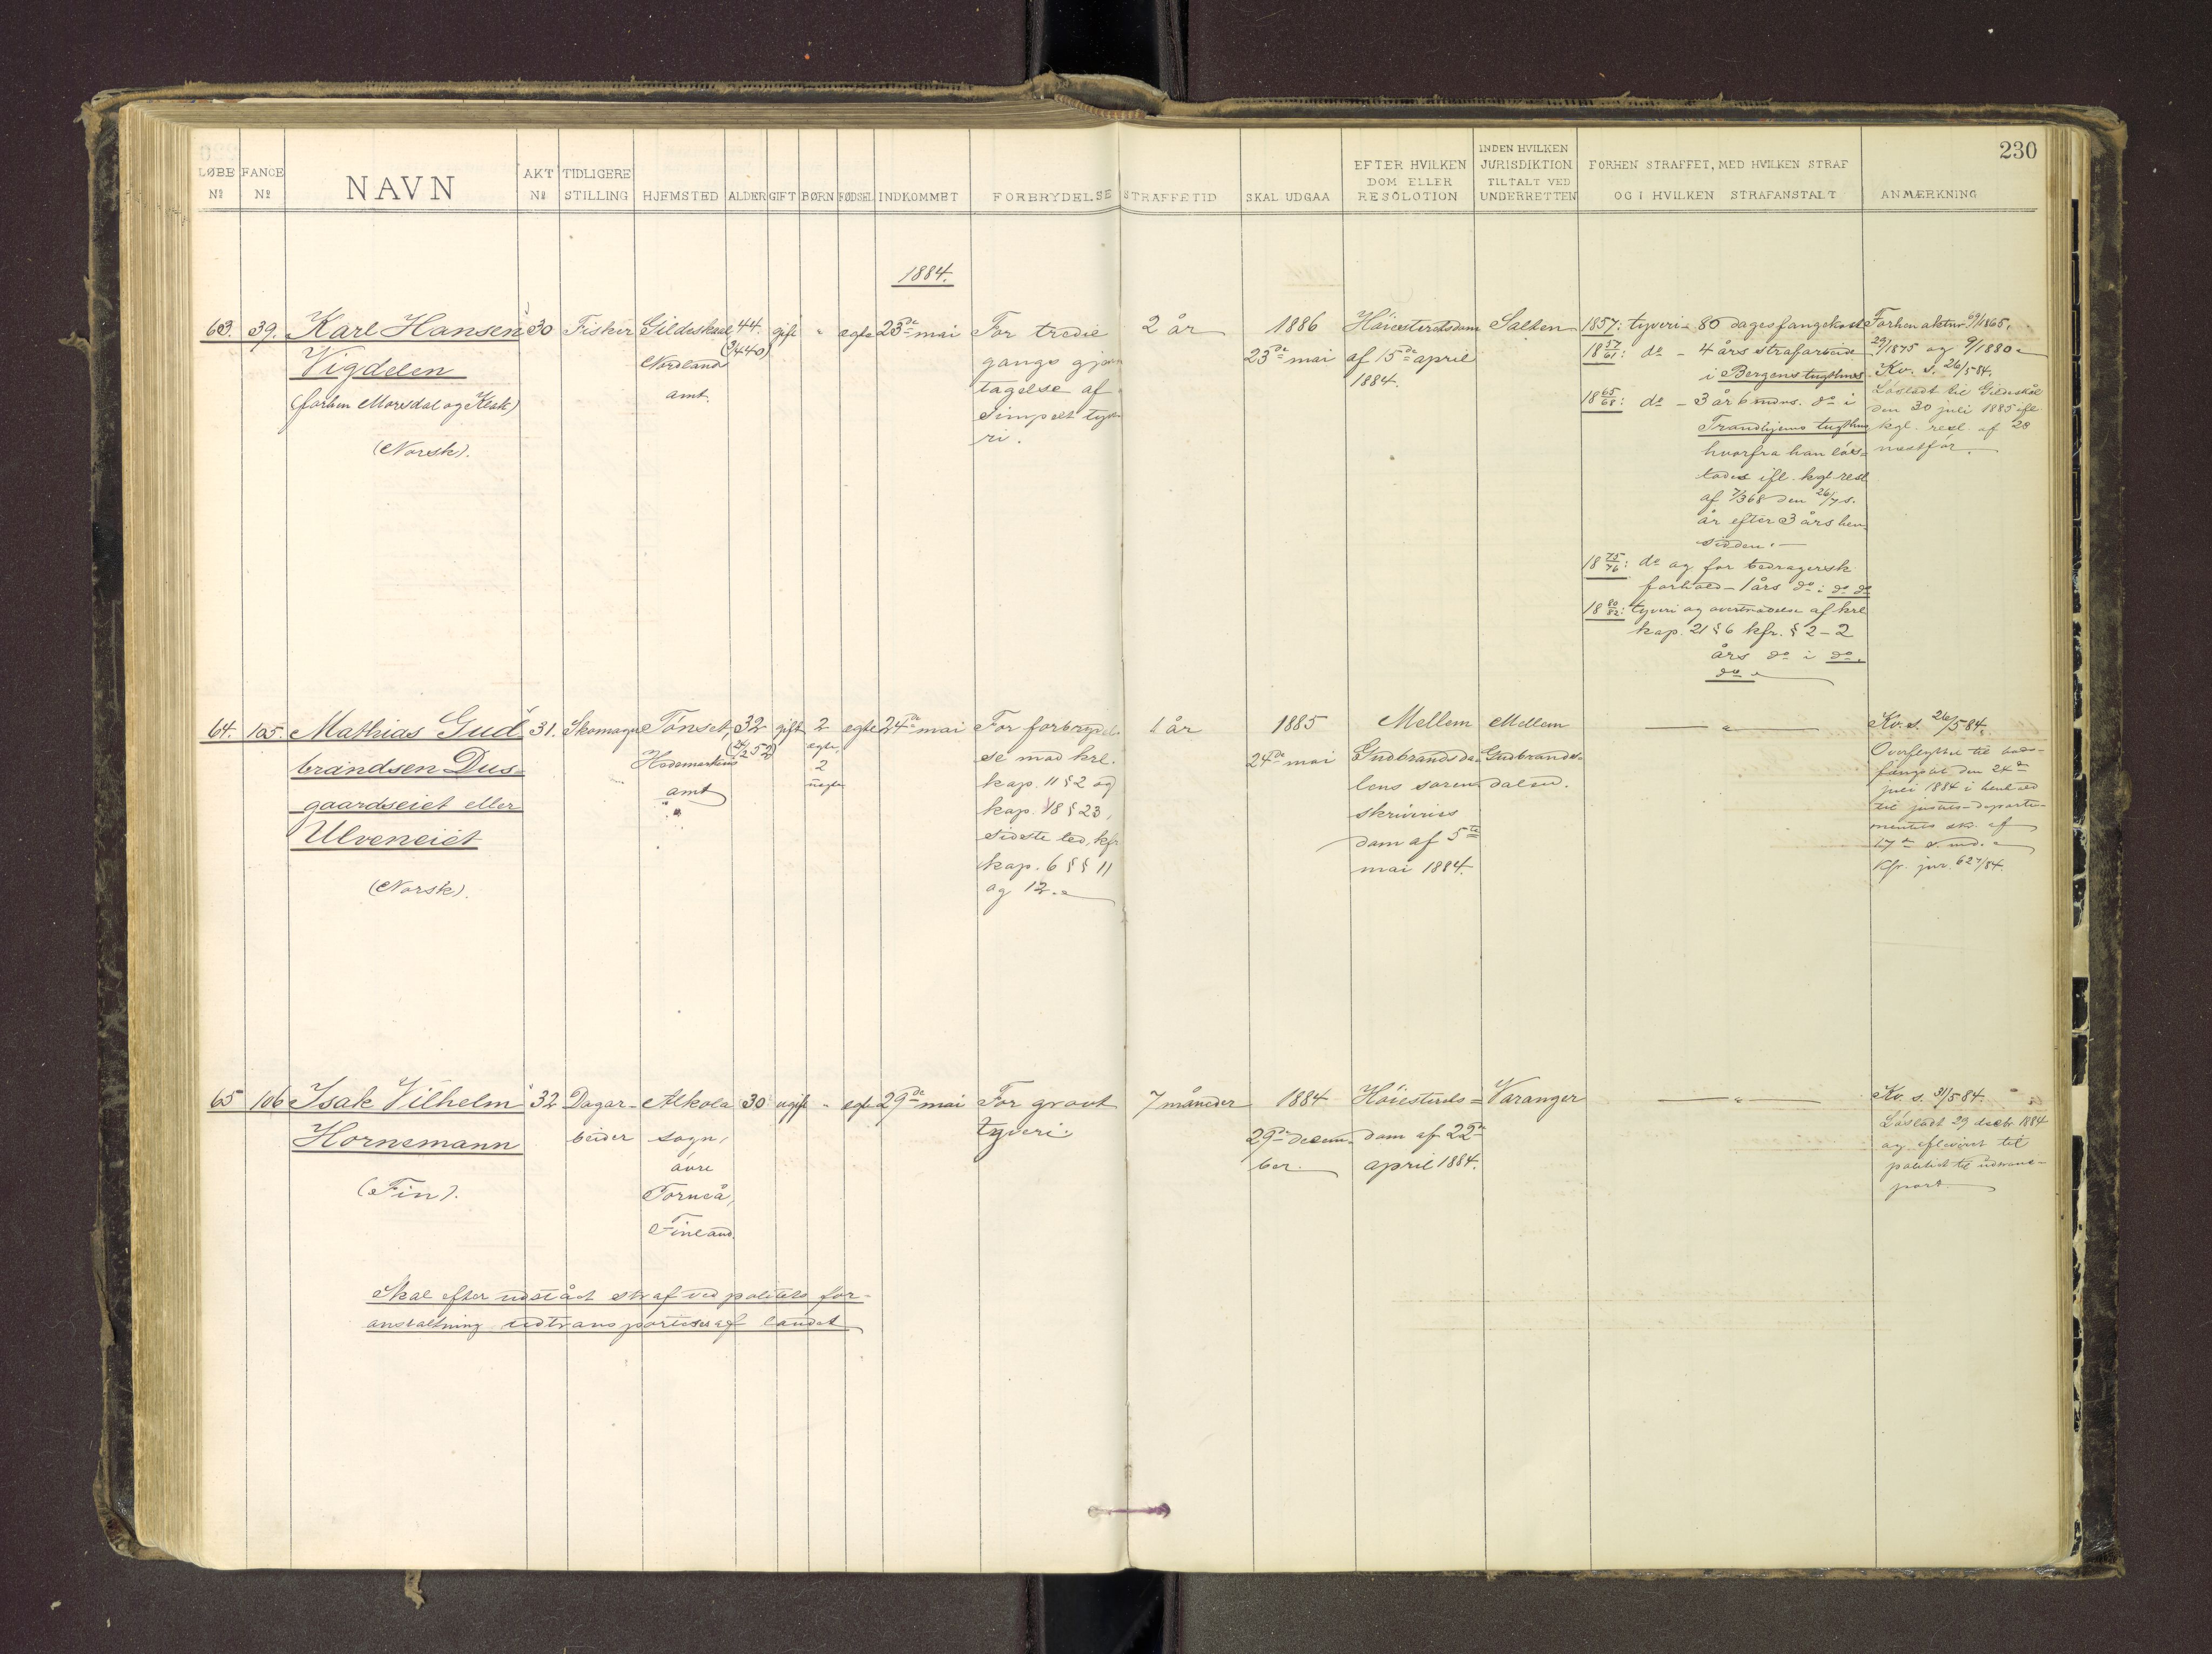 230
LØBE Nº
FANGE Nº
NAVN
AKT Nº
TIDLIGERE STILLING
HJEMSTED
ALDER
GIFT
BØRN
FØDSEL
INDKOMMET
FORBRYDELSE
STRAFFETID
SKAL UDGAA
EFTER HVILKEN
DOM ELLER
RESOLOTION
INDEN HVILKEN
JURISDIKTION
TILTALT VED
UNDERRETTEN
FORHEN STRAFFET, MED HVILKEN STRAF
OG I HVILKEN STRAFANSTALT
ANMÆRKNING
1884.
63.
39.
Karl Hansen
Vigdelen
(forhen Morsdal og Klak)
(Norsk).
30
Fisker
Gildeskaal
Nordland
amt.
44.
(3/440)
gift
"
egte
23de mai
For tredie
gangs gjen
tagelse af
simpelt tyve
ri.
2 år
1886
23de mai
Höiesteretsdom
af 15de april
1884.
Salten
1857: tyveri - 80 dages fangekost
18 57/61: do - 4 års strafarbeide
i Bergens tugthus
18 65/68: do - 3 år 6 mdns. do i
Trondhjems tugthus
hvorfra han lös-
lodes ifl. kgl. resl.
af 7/3 68 den 26/7 s.
år efter 3 års hen-
sidden. -
18 75/76: do og for bedragersk
forhold - 1 års do i do do
18 80/82: tyveri og overtrædelse af krl.
kap. 21 § 6 kfr. § 2 - 2
års do i do.
do.
Forhen aktnr 69/1865,
29/1875 og 9/1880.
Kv. s. 26/5 84.
Lösladt til Gildeskål
den 30 juli 1885 ifl.
kgl. resl. af 28
næstför.
64.
105.
Mathias Gud
brandsen Dus-
gaardseiet eller
Ulveneiet
(Norsk).
31.
Skomager
Tönset,
Hedemarkens
amt
32
(24/2 52)
gift
2
egte.
2
uegte
egte
24de mai
For forbrydel-
se mod krl.
kap. 11 § 2 og
kap. 18 § 23,
sidste led, kfr
kap. 6 §§ 11
og 12.
1 år
1885
24de mai
Mellem
Gudbrandsda-
lens soren-
skriveries
dom af 5te
mai 1884.
Mellem
Gudbrands-
dalen.
"
Kv. s. 26/5 84.
Overflyttet til bods-
fængslet den 24de
juli 1884 i henhold
til justis-departe-
mentets skr. af
17de s. md.
Kfr. jnr. 627/84.
65
106
Isak Vilhelm
Hornemann
(Fin).
32
Dagar-
beider
Alkola
sogn,
övre
Torneå,
Finland.
30
ugift
"
egte
29de mai
For grovt
tyveri.
7 måneder
1884
29de decem-
ber.
Höiesterets-
dom af 22de
april 1884.
Varanger
"
Kv. s. 31/5 84.
Lösladt 29 decbr. 1884
og afleveret til
politiet til udtrans-
port.
Skal efter udstået straf ved politiets for-
anstaltning udtransporteres af landet